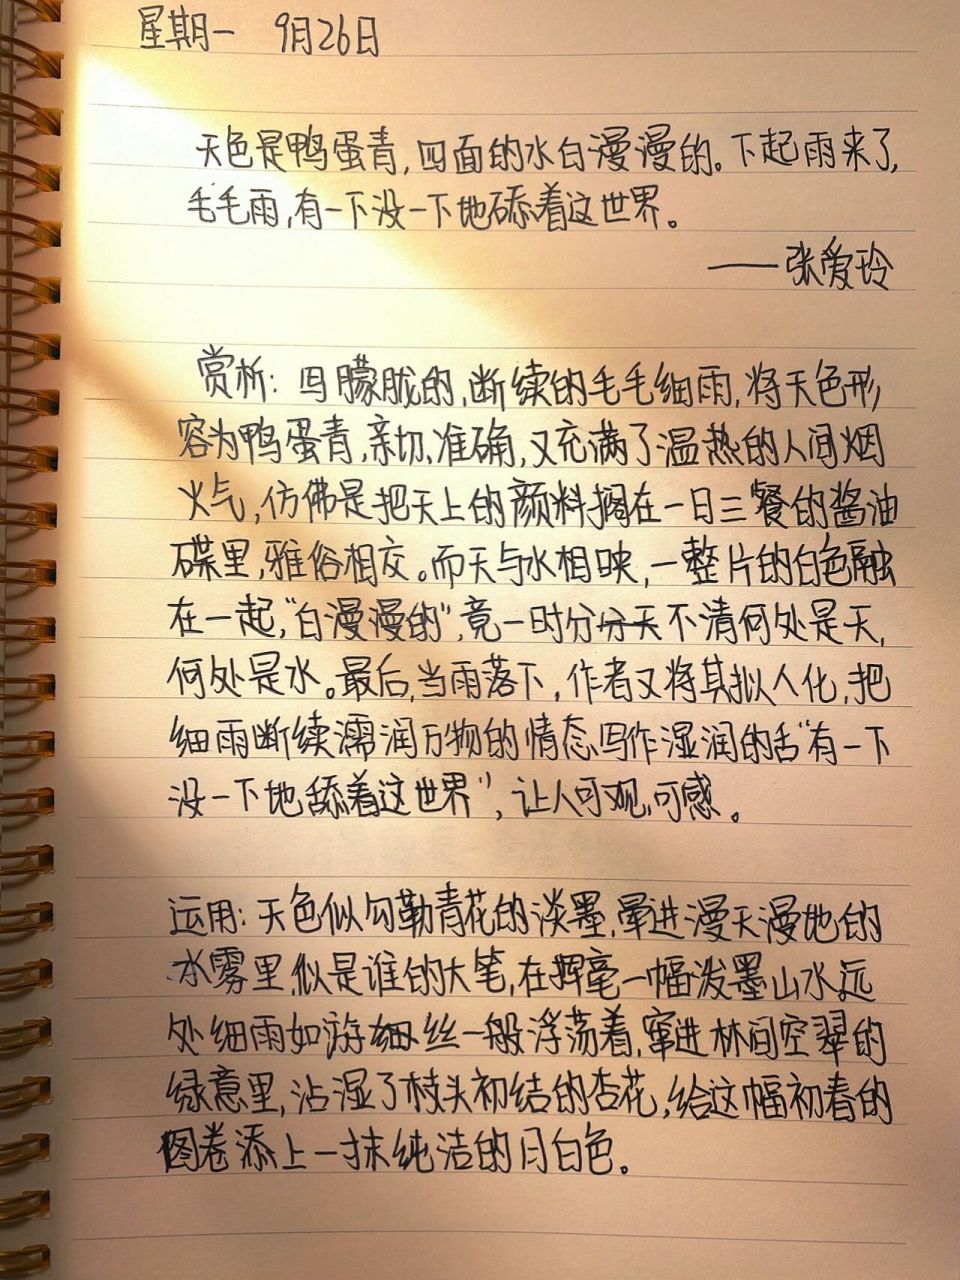 星期一 9月26日
天色是鸭蛋青,四面的水白漫漫的。下起雨来了,
毛毛雨,有一下没一下地舔着这世界。
——张爱玲
赏析:写朦胧的,断续的毛毛细雨,将天色形
容为鸭蛋青,亲切、准确,又充满了温热的人间烟
火气,仿佛是把天上的颜料搁在一日三餐的酱油
碟里,雅俗相交。而天与水相映,一整片的白色融
在一起,“白漫漫的”,竟一时分不清何处是天,
何处是水。最后,当雨落下,作者又将其拟人化,把
细雨断续濡润万物的情态写作湿润的舌“有一下
没一下地舔着这世界”,让人可观,可感。
运用:天色似勾勒青花的淡墨,晕进漫天漫地的
水雾里,似是谁的大笔,在挥毫一幅泼墨山水,远
处细雨如游丝一般浮荡着,窜进林间空翠的
绿意里,沾湿了枝头初结的杏花,给这幅初春的
图卷添上一抹纯洁的月白色。